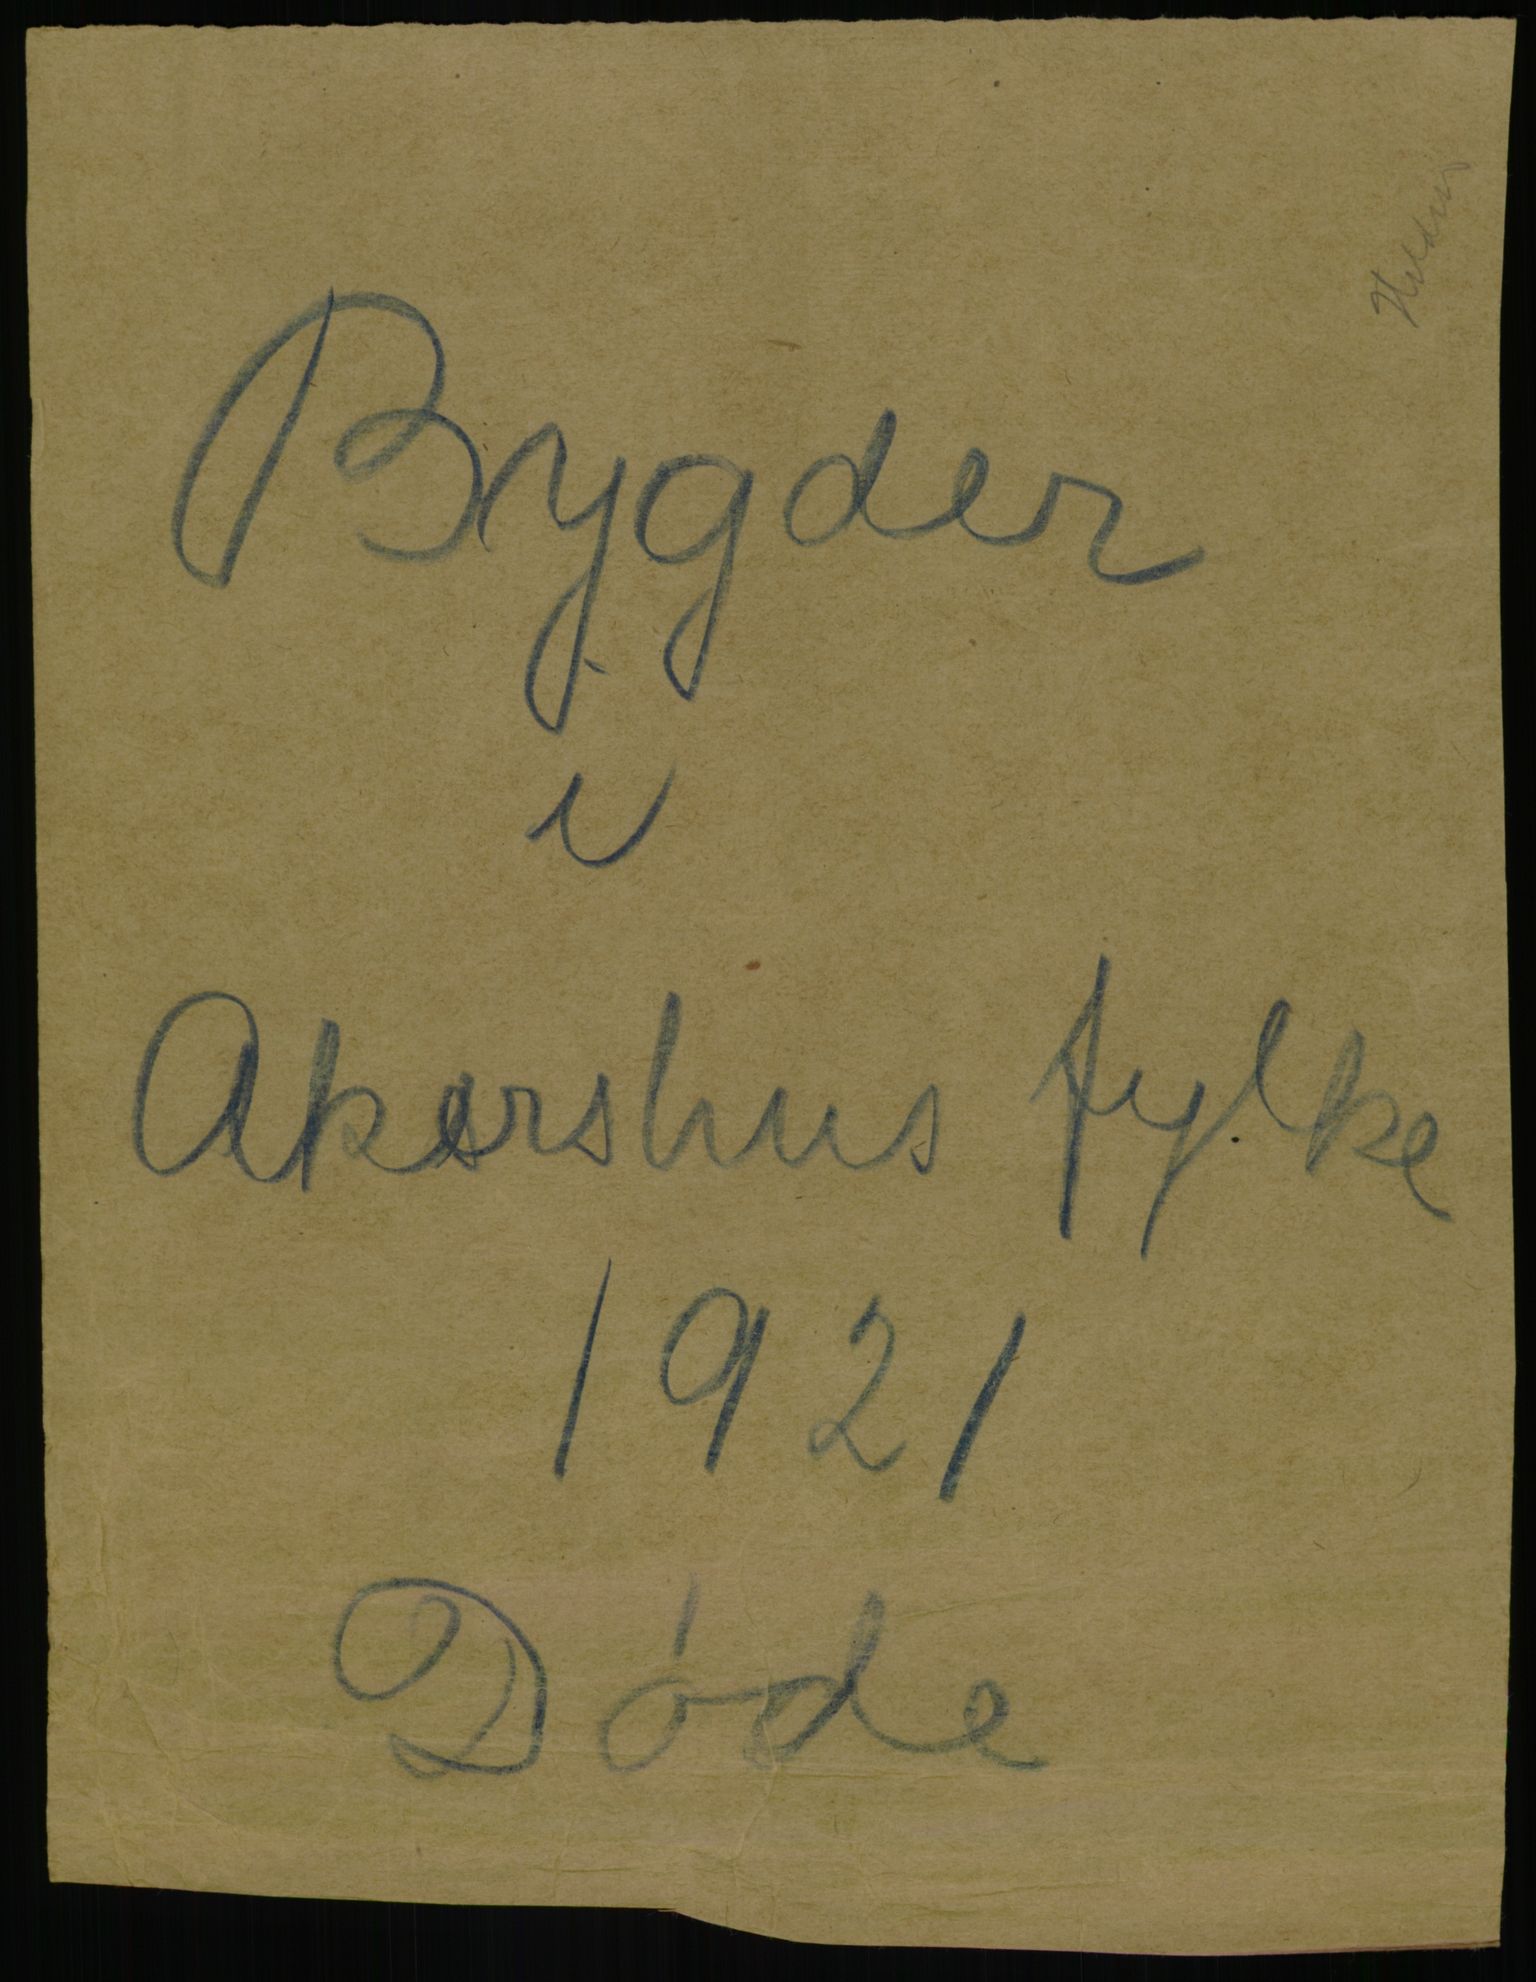 Bygder
i
Akershus fylke
1921
Døde